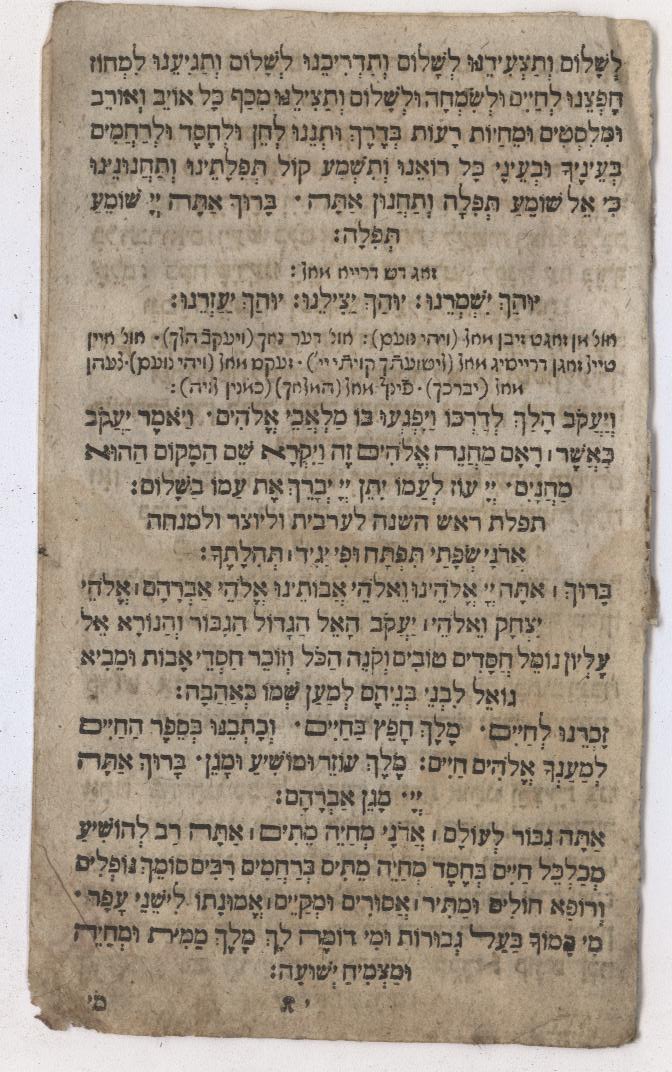 לְשָׁלוֹם וְתַצְעִידֵנוּ לְשָׁלוֹם וְתַדְרִיכֵנוּ לְשָׁלוֹם וְתַגִיעֵנוּ לִמְחוֹז
חֶפְצֵנוּ לְחַיִּים וּלְשִׂמְחָה וּלְשָׁלוֹם וְתַצִילֵנוּ מִכַּף כָּל אוֹיֵב וְאוֹרֵב
וּמִלִסְטִים וּמֵחַיּוֹת רָעוֹת בְּדֶרֶךְ וּתְנֵנוּ לְחֵן וּלְחֶסֶד וּלְרַחֲמִים
בְּעֵינֶיךָ וּבְעֵינֵי כָּל רוֹאֵנוּ וְתִשְׁמַע קוֹל תְּפִלָתֵינוּ וְתַחֲנוּנֵינוּ
כִּי אֵל שׁוֹמֵעַ תְּפִלָה וְתַחֲנוּן אַתָּה · בָּרוּךְ אַתָּה יְיָ שׁוֹמֵעַ
תְּפִלָה:
זאג דש דרייא מאן:
יוּהַךְ יִשְׁמְרֵנוּ: יוּהַךְ יַצִילֵנוּ: יוּהַךְ יַעַזְרֵנוּ:
אונ' מן זאגט זיבן מאן (ויהי נועם): אונ' דער נאך (ויעקב הלך) · אונ' איין
טייל זאגן דרייסיג מאן (לישועתך קויתי יי') · זעקס מאן (ויהי נועם) · צעהן
מאן (יברכך) · פינף מאן (המלאך) (כאנין ליה):
וְיַעֲקֹב הָלַךְ לְדַרְכּוֹ וַיִפְגְעוּ בוֹ מַלְאֲכֵי אֱלֹהִים · וַיֹאמֶר יַעֲקֹב
כַּאֲשֶׁר ׀ רָאָם מַחֲנֵה אֱלֹהִים זֶה וַיִקְרָא שֵׁם הַמָקוֹם הַהוּא
מַחֲנָיִם · יְיָ עוֹז לְעַמוֹ יִתֵּן יְיָ יְבָרֵךְ אֶת עַמוֹ בַשָׁלוֹם:
תפלת ראש השנה לערבית וליוצר ולמנחה
אֲדֹנָי שְׂפָתַי תִּפְתָּח וּפִי יַגִיד ׀ תְּהִלָתֶךָ:
בָּרוּךְ ׀ אַתָּה יְיָ אֱלֹהֵינוּ וֵאלֹהֵי אֲבוֹתֵינוּ אֱלֹהֵי אַבְרָהָם ׀ אֱלֹהֵי
יִצְחָק וֵאלֹהֵי ׀ יַעֲקֹב הָאֵל הַגָדוֹל הַגִבּוֹר וְהַנוֹרָא אֵל
עֶלְיוֹן גוֹמֵל חֲסָדִים טוֹבִים וְקֹנֵה הַכֹּל וְזוֹכֵר חַסְדֵי אָבוֹת וּמֵבִיא
גוֹאֵל לִבְנֵי בְנֵיהֶם לְמַעַן שְׁמוֹ בְּאַהֲבָה:
זָכְרֵנוּ לְחַיִּים · מֶלֶךְ חָפֵץ בַּחַיִּים · וְכָתְבֵנוּ בְּסֵפֶר הַחַיִּים
לְמַעַנְךָ אֱלֹהִים חַיִּים: מֶלֶךְ עוֹזֵר וּמוֹשִׁיעַ וּמָגֵן · בָּרוּךְ אַתָּה
יְיָ · מָגֵן אַבְרָהָם:
אַתָּה גִבּוֹר לְעוֹלָם ׀ אֲדֹנָי מְחַיֵה מֵתִים ׀ אַתָּה רַב לְהוֹשִׁיעַ
מְכַלְכֵּל חַיִּים בְּחֶסֶד מְחַיֵה מֵתִים בְּרַחֲמִים רַבִּים סוֹמֵךְ נוֹפְלִים
וְרוֹפֵא חוֹלִים וּמַתִּיר ׀ אֲסוּרִים וּמְקַיֵים ׀ אֱמוּנָתוֹ לִישֵׁנֵי עָפָר ·
מִי כָמוֹךָ בַּעַל גְבוּרוֹת וּמִי דוֹמֶה לָךְ מֶלֶךְ מֵמִית וּמְחַיֶה
וּמַצְמִיחַ יְשׁוּעָה:
מי